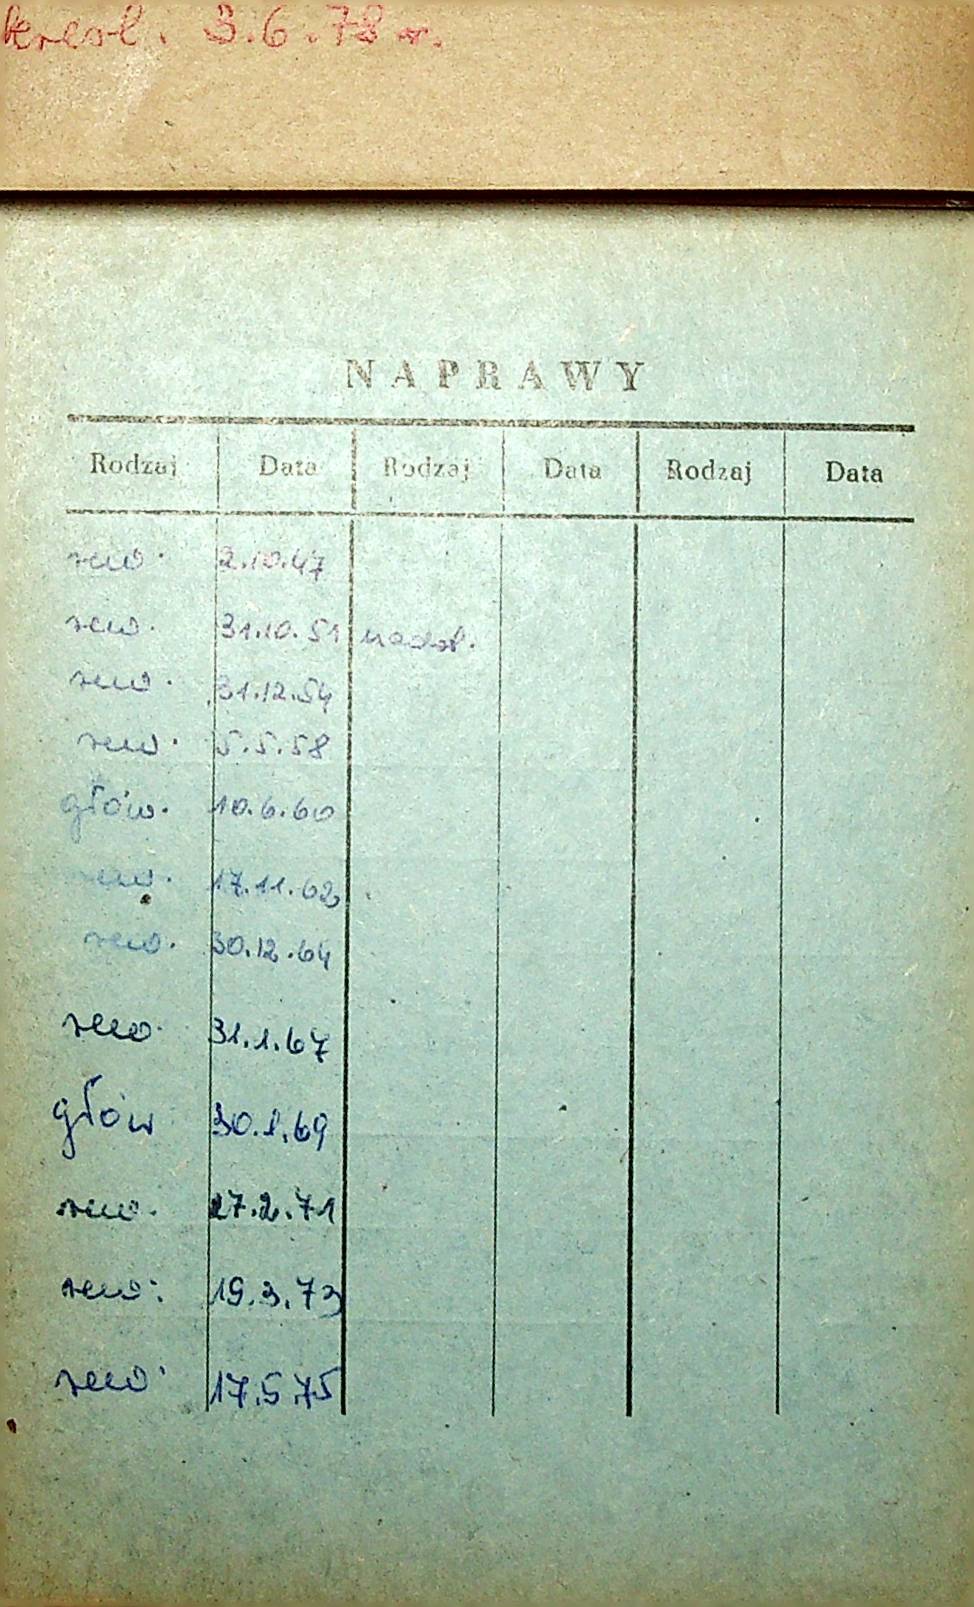 kresl. 3.6.78 r.
NAPRAWY
Rodzaj Data Rodzaj Data Rodzaj Data
rew. 2.10.47
rew. 31.10.51 nadzt.
rew. 31.12.54
rew. 5.5.58
głów. 10.6.60
rew. 17.11.62
rew. 30.12.64
rew. 31.1.67
głów 30.1.69
rew. 27.2.71
rew. 19.3.73
rew. 17.5.75